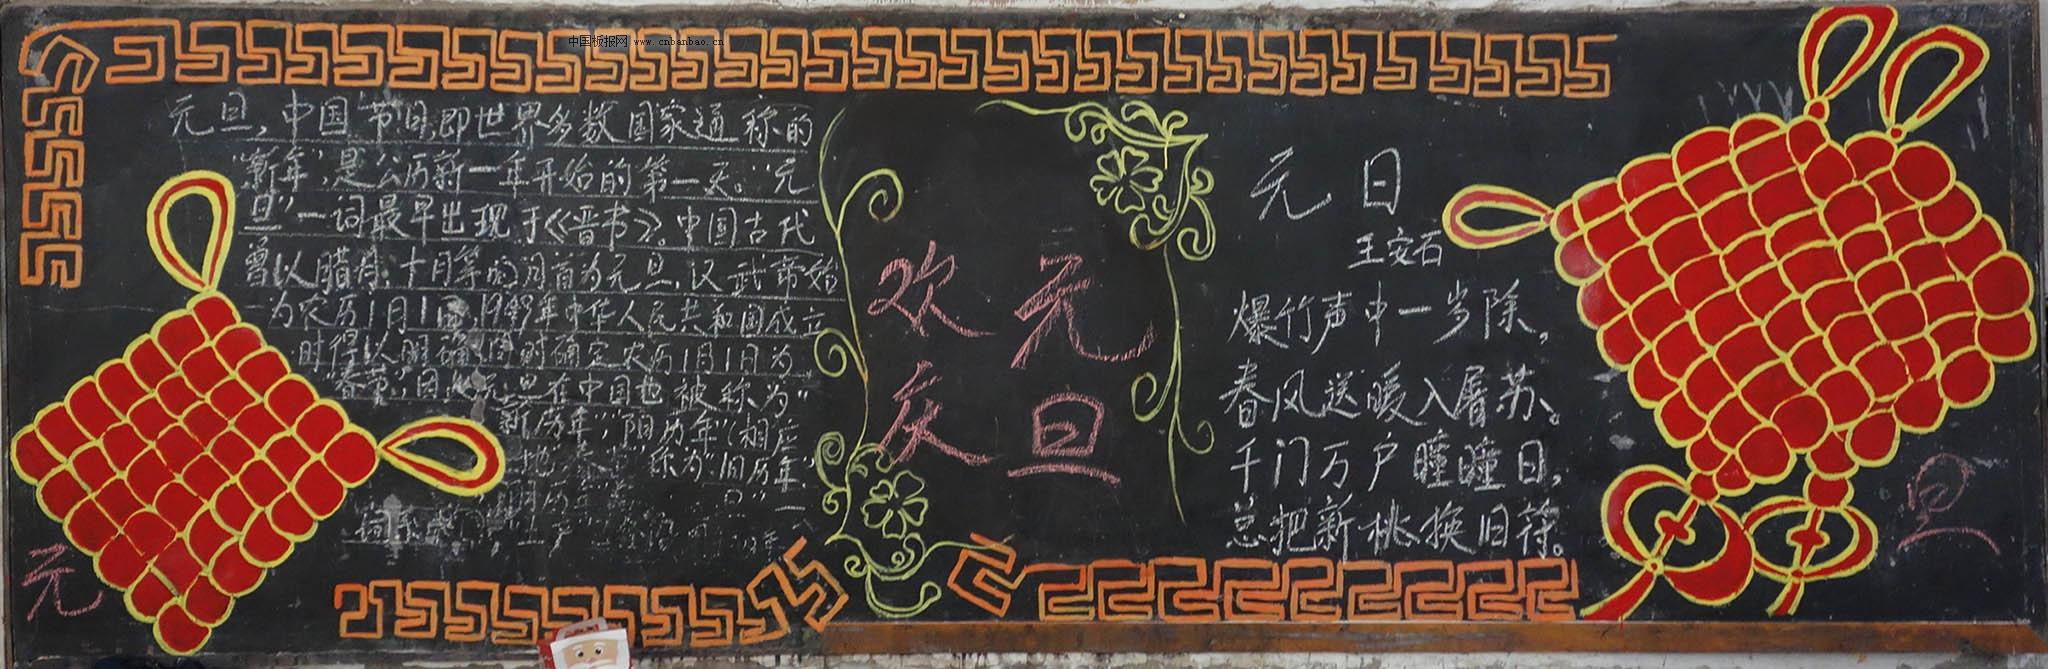 中国板报网 www.cnbanbao.cn
元旦，中国节日，即世界多数国家通称的
“新年”，是公历新一年开始的第一天。“元
旦”一词最早出现于《晋书》。中国古代
曾以腊月、十月等的月首为元旦，汉武帝始
为农历1月1日，1949年中华人民共和国成立
时得以明确，同时确定农历1月1日为
“春节”，因此元旦在中国也被称为“
新历年”，“阳历年”（相应
称为“旧历年”，
欢庆
元旦
元日
王安石
爆竹声中一岁除，
春风送暖入屠苏。
千门万户曈曈日，
总把新桃换旧符。
元
旦